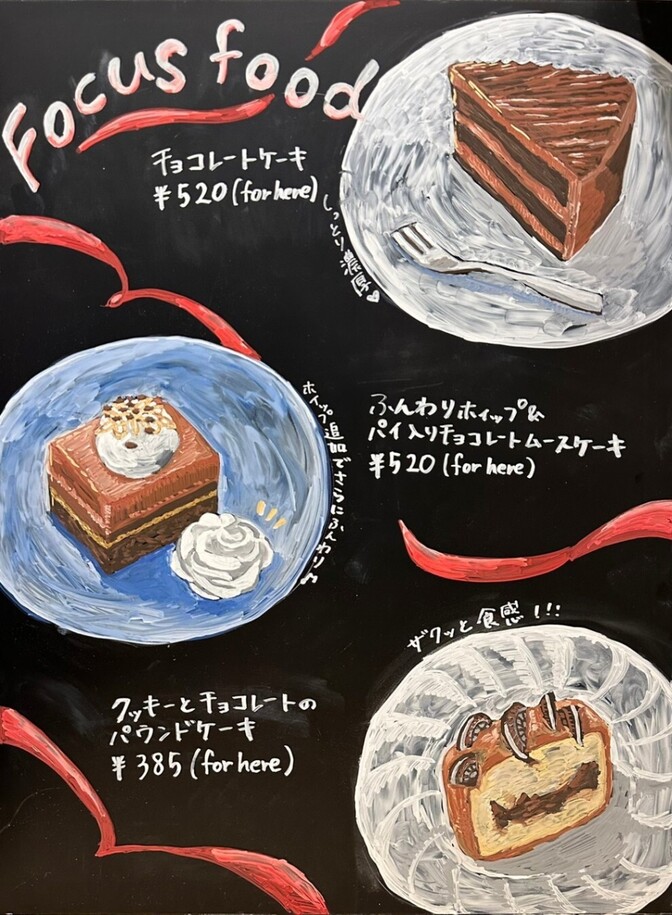 Focus food
チョコレートケーキ
¥520(for here)
しっとり濃厚♥
ふんわりホイップ&
パイ入りチョコレートムースケーキ
¥520(for here)
ホイップ追加でさらにふんわり♪
ザクッと食感!!!
クッキーとチョコレートの
パウンドケーキ
¥385(for here)